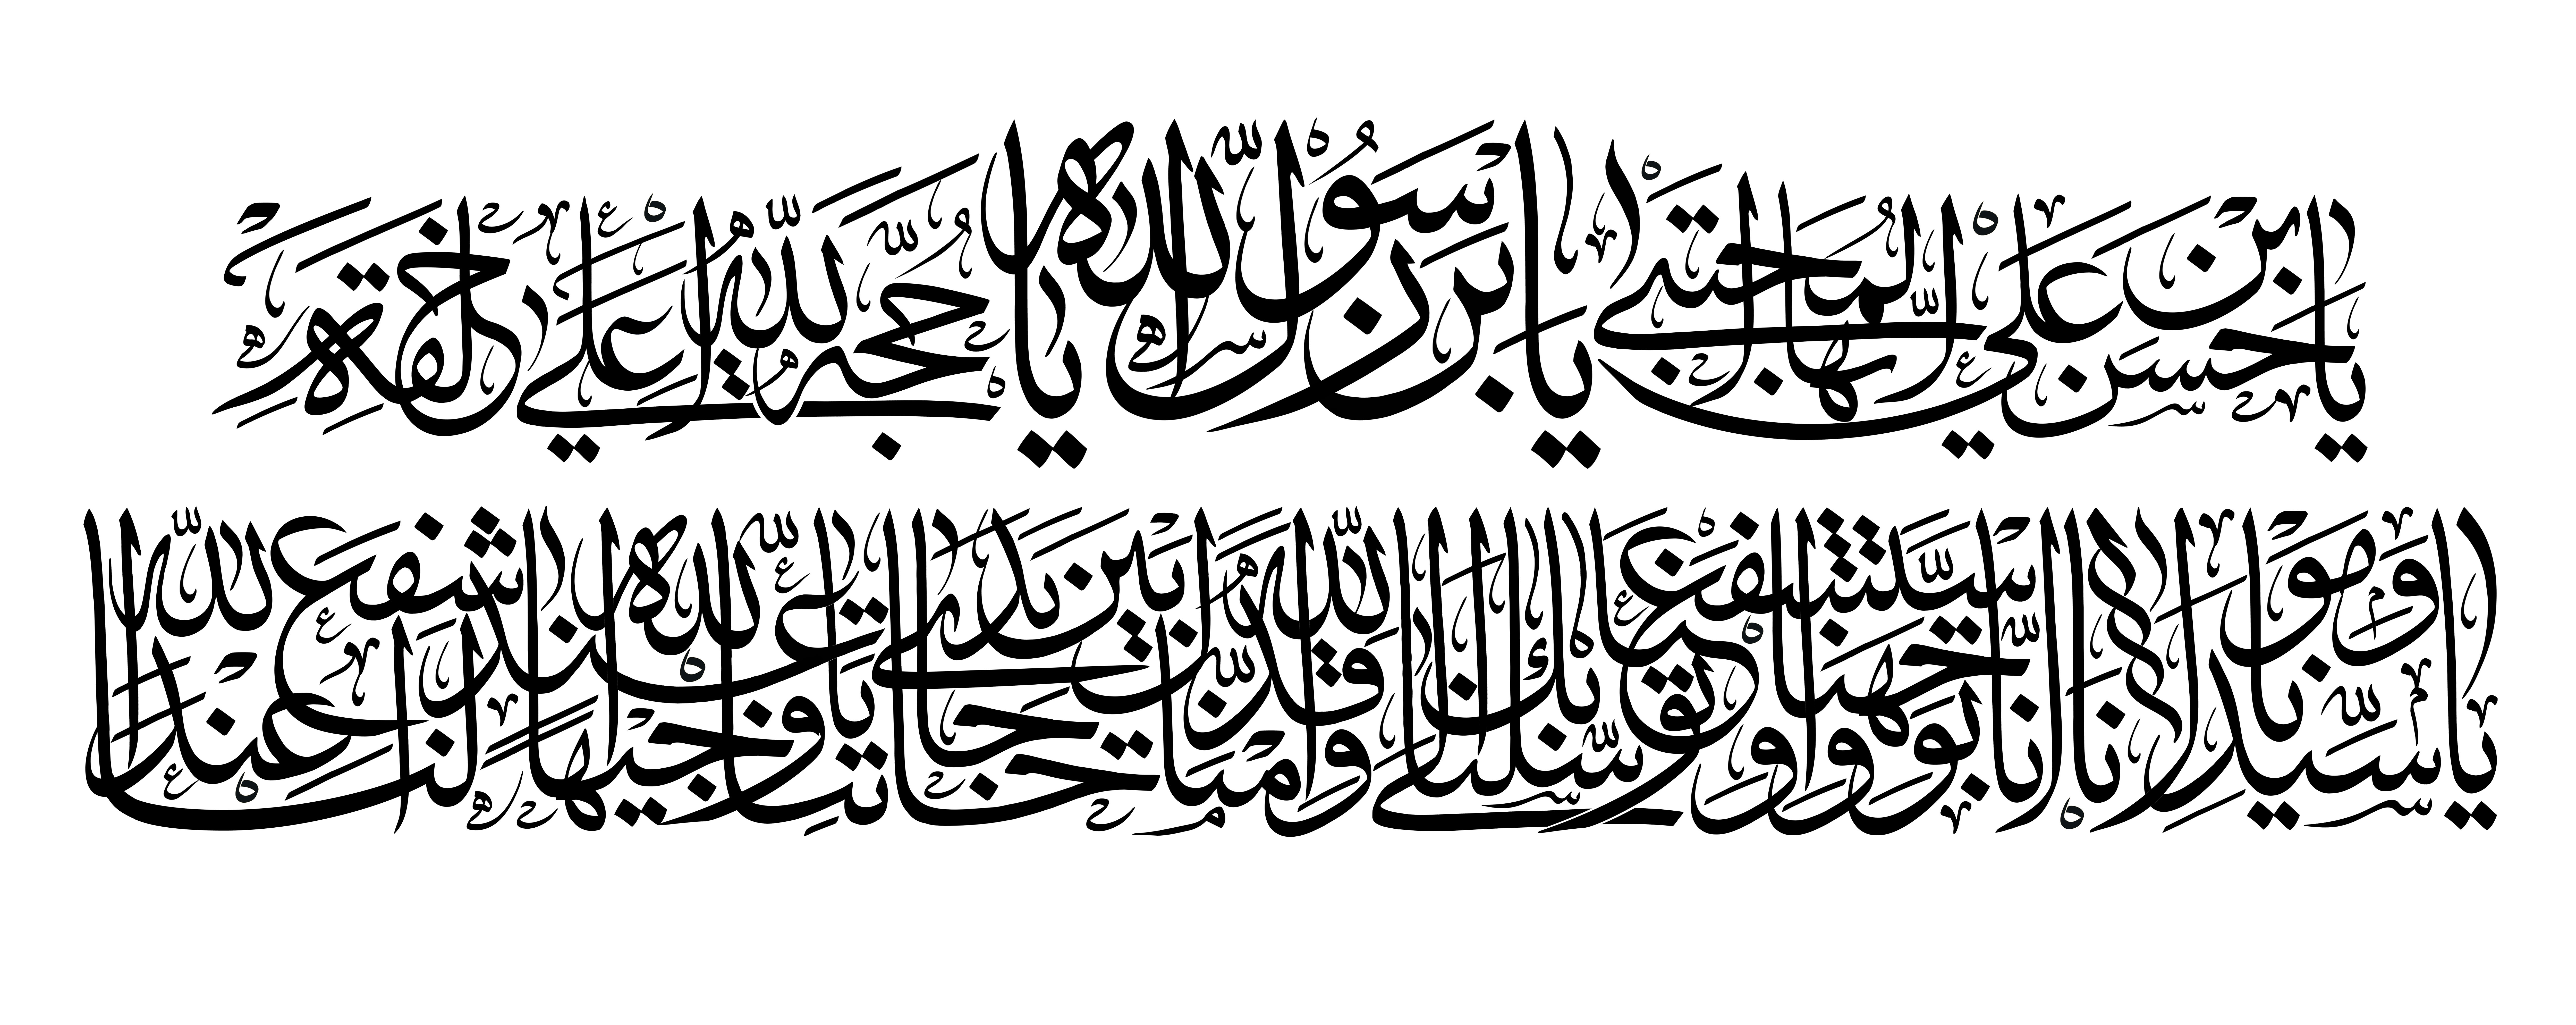 يَا حَسَنَ بْنَ عَلِيٍّ أَيُّهَا الْمُجْتَبَىٰ يَا بْنَ رَسُولِ اللّٰهِ يَا حُجَّةَ اللّٰهِ عَلَىٰ خَلْقِهِ
يَا سَيِّدَنَا وَمَوْلَانَا إِنَّا تَوَجَّهْنَا وَاسْتَشْفَعْنَا وَتَوَسَّلْنَا بِكَ إِلَى اللّٰهِ وَقَدَّمْنَاكَ بَيْنَ يَدَيْ حَاجَاتِنَا يَا وَجِيهًا عِنْدَ اللّٰهِ اشْفَعْ لَنَا عِنْدَ اللّٰهِ